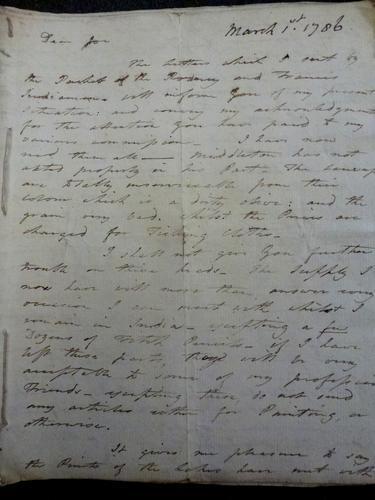 March 1st. 1786
Dear Joe
The letters which I sent by
the Packet of the Rodney and Francis
Indiamen will inform you of my present
situation: and convey my acknowledgments
for the attention you have paid to my
various commissions. I have now
them all — Middleton has not
acted properly in his Part — The
are totally from their
colour which is a dirty olive: and the
grain very bad. whilst the Prices are
charged for Ticking Cloths —
I shall not give you further
trouble on these heads — The supply I
now have will more than answer every
occasion I can meet with whilst I
remain in India — excepting a few
Dozens of Pencils — If I have
left those parts, they will be very
acceptable to some of my profession
Friends — excepting these do not send
any articles either for Painting, or
otherwise.
It gives me pleasure to say
the Prints of the have met with